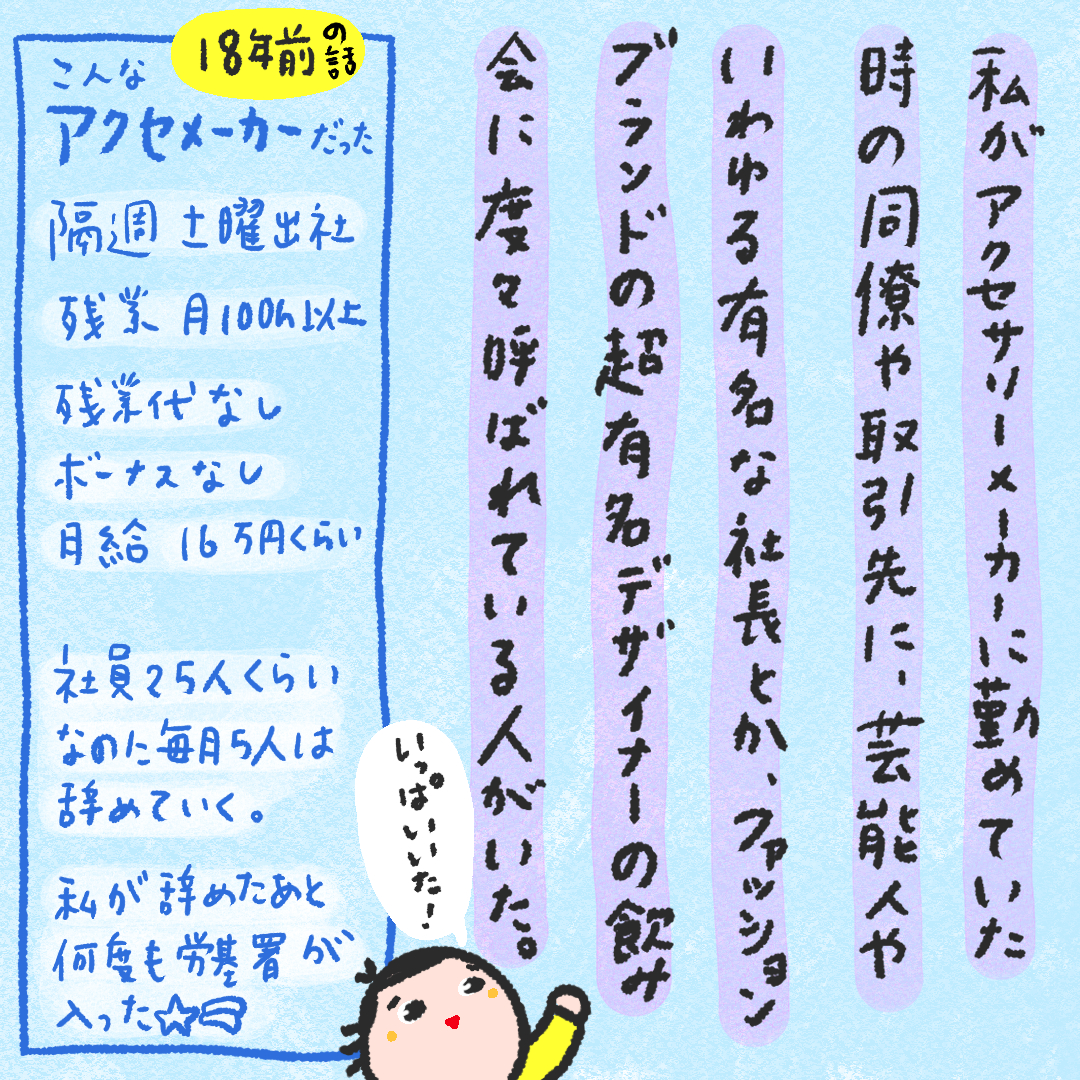 私がアクセサリーメーカーに勤めていた
時の同僚や取引先に、芸能人や
いわゆる有名な社長とか、ファッション
ブランドの超有名デザイナーの飲み
会に度々呼ばれている人がいた。
いっぱいいた!
18年前の話
こんな
アクセメーカーだった
隔週 土曜出社
残業 月100h以上
残業代なし
ボーナスなし
月給 16万円くらい
社員25人くらい
なのに毎月5人は
辞めていく。
私が辞めたあと
何度も労基署が
入った☆